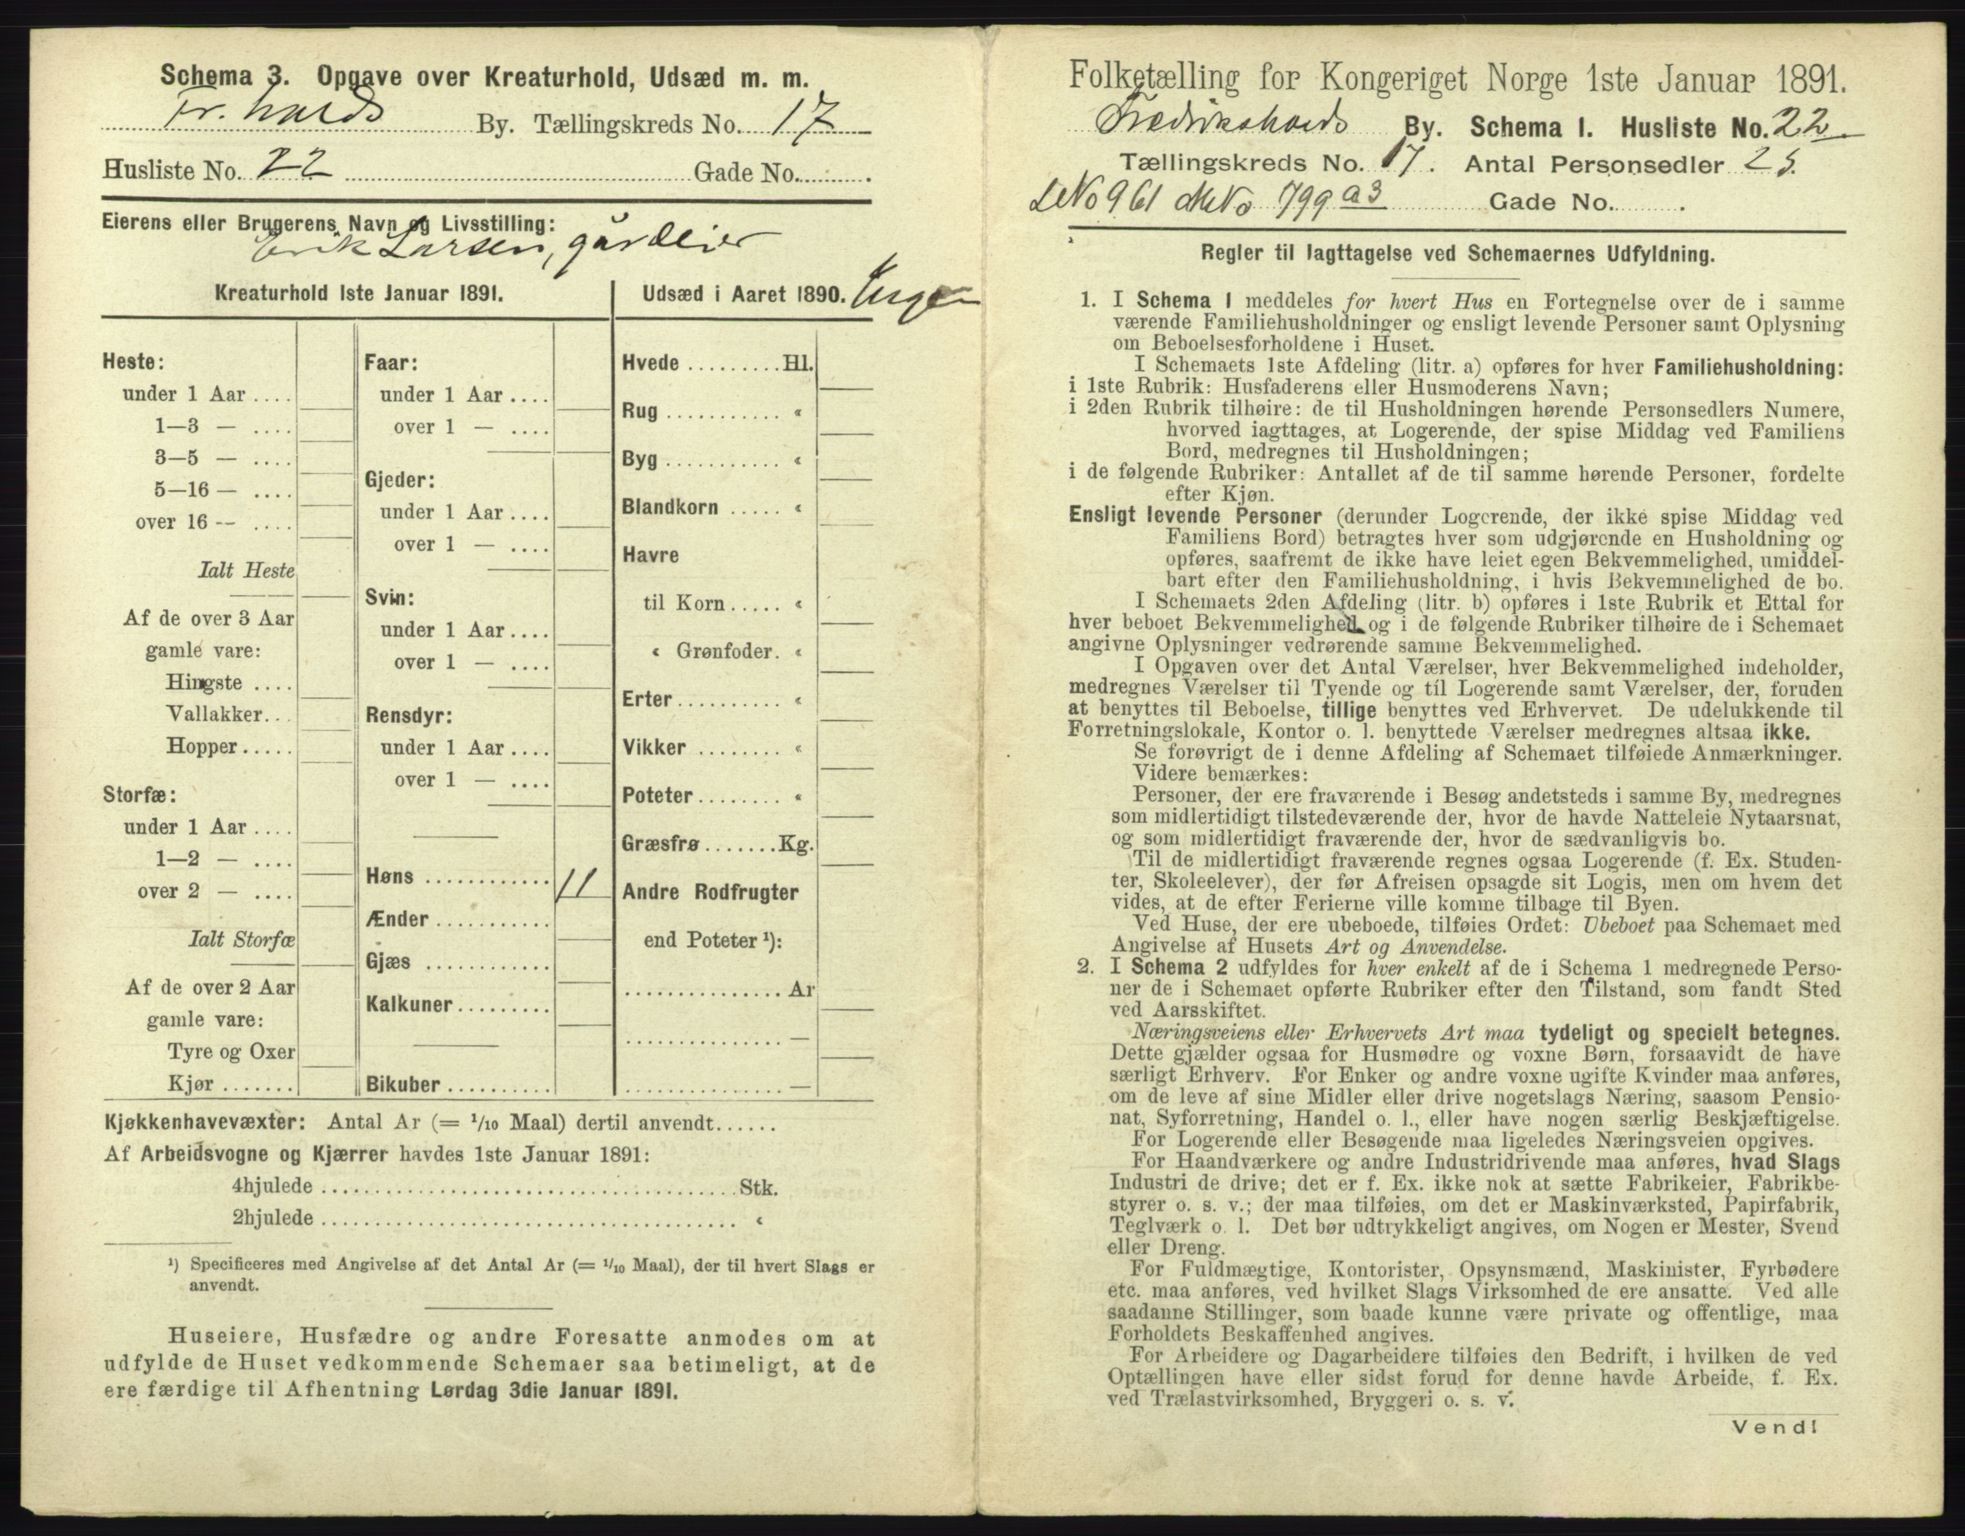 Schema 3. Opgave over Kreaturhold, Udsæd m. m.
Fr.halds By. Tællingskreds No. 17
Husliste No. 22 Gade No. .
Eierens eller Brugerens Navn og Livsstilling:
Erik Larsen, gårdeier
Kreaturhold 1ste Januar 1891.
Heste:
under 1 Aar ....
1—3 — ....
3—5 — ....
5—16 — ....
over 16 — ....
Ialt Heste
Af de over 3 Aar
gamle vare:
Hingste ....
Vallakker...
Hopper.....
Storfæ:
under 1 Aar ....
1—2 — ....
over 2 — ....
Ialt Storfæ
Af de over 2 Aar
gamle vare:
Tyre og Oxer
Kjør .......
Faar:
under 1 Aar ....
over 1 — ....
Gjeder:
under 1 Aar ....
over 1 — ....
Svin:
under 1 Aar ....
over 1 — ....
Rensdyr:
under 1 Aar ....
over 1 — ....
Høns ............ 11
Ænder ...........
Gjæs ............
Kalkuner .........
Bikuber ..........
Udsæd i Aaret 1890. Ingen
Hvede ......... Hl.
Rug ........... "
Byg ........... "
Blandkorn ..... "
Havre
til Korn ..... "
" Grønfoder. "
Erter.......... "
Vikker ........ "
Poteter ........ "
Græsfrø ....... Kg.
Andre Rodfrugter
end Poteter ¹):
............... Ar
............... —
............... —
Kjøkkenhavevæxter: Antal Ar (= 1/10 Maal) dertil anvendt......
Af Arbeidsvogne og Kjærrer havdes 1ste Januar 1891:
4hjulede ........................................ Stk.
2hjulede ........................................ "
¹) Specificeres med Angivelse af det Antal Ar (= 1/10 Maal), der til hvert Slags er
anvendt.
Huseiere, Husfædre og andre Foresatte anmodes om at
udfylde de Huset vedkommende Schemaer saa betimeligt, at de
ere færdige til Afhentning Lørdag 3die Januar 1891.
Folketælling for Kongeriget Norge 1ste Januar 1891.
Fredrikshalds By. Schema 1. Husliste No. 22
Tællingskreds No. 17. Antal Personsedler 25.
LNo 961 MNo 799 a3 Gade No. .
Regler til Iagttagelse ved Schemaernes Udfyldning.
1. I Schema 1 meddeles for hvert Hus en Fortegnelse over de i samme
værende Familiehusholdninger og ensligt levende Personer samt Oplysning
om Beboelsesforholdene i Huset.
I Schemaets 1ste Afdeling (litr. a) opføres for hver Familiehusholdning:
i 1ste Rubrik: Husfaderens eller Husmoderens Navn;
i 2den Rubrik tilhøire: de til Husholdningen hørende Personsedlers Numere,
hvorved iagttages, at Logerende, der spise Middag ved Familiens
Bord, medregnes til Husholdningen;
i de følgende Rubriker: Antallet af de til samme hørende Personer, fordelte
efter Kjøn.
Ensligt levende Personer (derunder Logerende, der ikke spise Middag ved
Familiens Bord) betragtes hver som udgjørende en Husholdning og
opføres, saafremt de ikke have leiet egen Bekvemmelighed, umiddel-
bart efter den Familiehusholdning, i hvis Bekvemmelighed de bo.
I Schemaets 2den Afdeling (litr. b) opføres i 1ste Rubrik et Ettal for
hver beboet Bekvemmelighed og i de følgende Rubriker tilhøire de i Schemaet
angivne Oplysninger vedrørende samme Bekvemmelighed.
I Opgaven over det Antal Værelser, hver Bekvemmelighed indeholder,
medregnes Værelser til Tyende og til Logerende samt Værelser, der, foruden
at benyttes til Beboelse, tillige benyttes ved Erhvervet. De udelukkende til
Forretningslokale, Kontor o. l. benyttede Værelser medregnes altsaa ikke.
Se forøvrigt de i denne Afdeling af Schemaet tilføiede Anmærkninger.
Videre bemærkes:
Personer, der ere fraværende i Besøg andetsteds i samme By, medregnes
som midlertidigt tilstedeværende der, hvor de havde Natteleie Nytaarsnat,
og som midlertidigt fraværende der, hvor de sædvanligvis bo.
Til de midlertidigt fraværende regnes ogsaa Logerende (f. Ex. Studen-
ter, Skoleelever), der før Afreisen opsagde sit Logis, men om hvem det
vides, at de efter Ferierne ville komme tilbage til Byen.
Ved Huse, der ere ubeboede, tilføies Ordet: Ubeboet paa Schemaet med
Angivelse af Husets Art og Anvendelse.
2. I Schema 2 udfyldes for hver enkelt af de i Schema 1 medregnede Perso-
ner de i Schemaet opførte Rubriker efter den Tilstand, som fandt Sted
ved Aarsskiftet.
Næringsveiens eller Erhvervets Art maa tydeligt og specielt betegnes.
Dette gjælder ogsaa for Husmødre og voxne Børn, forsaavidt de have
særligt Erhverv. For Enker og andre voxne ugifte Kvinder maa anføres,
om de leve af sine Midler eller drive nogetslags Næring, saasom Pensio-
nat, Syforretning, Handel o. l., eller have nogen særlig Beskjæftigelse.
For Logerende eller Besøgende maa ligeledes Næringsveien opgives.
For Haandværkere og andre Industridrivende maa anføres, hvad Slags
Industri de drive; det er f. Ex. ikke nok at sætte Fabrikeier, Fabrikbe-
styrer o. s. v.; der maa tilføies, om det er Maskinværksted, Papirfabrik,
Teglværk o. l. Det bør udtrykkeligt angives, om Nogen er Mester, Svend
eller Dreng.
For Fuldmægtige, Kontorister, Opsynsmænd, Maskinister, Fyrbødere
etc. maa anføres, ved hvilket Slags Virksomhed de ere ansatte. Ved alle
saadanne Stillinger, som baade kunne være private og offentlige, maa
Forholdets Beskaffenhed angives.
For Arbeidere og Dagarbeidere tilføies den Bedrift, i hvilken de ved
Optællingen have eller sidst forud for denne havde Arbeide, f. Ex.
ved Trælastvirksomhed, Bryggeri o. s. v.
Vend!